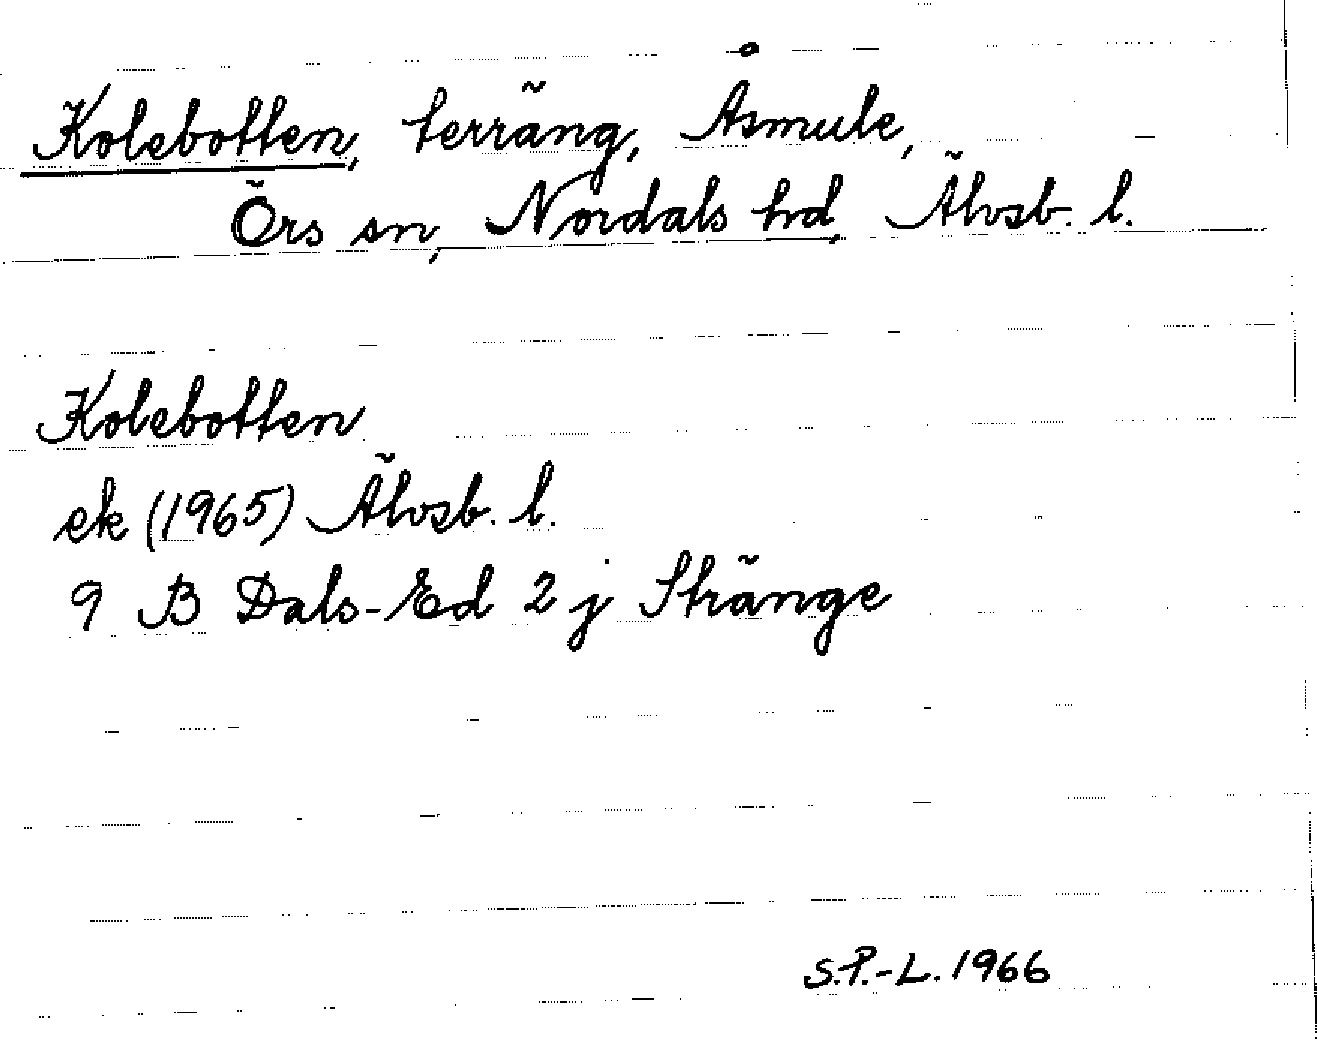 Kolebotten, terräng, Åsmule,
Örs sn, Nordals hd, Älvsb. l.
Kolebotten
ek (1965) Älvsb. l.
9 B Dals-Ed 2 j Stränge
S.P.-L. 1966